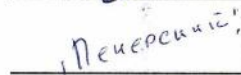 „Печерський"